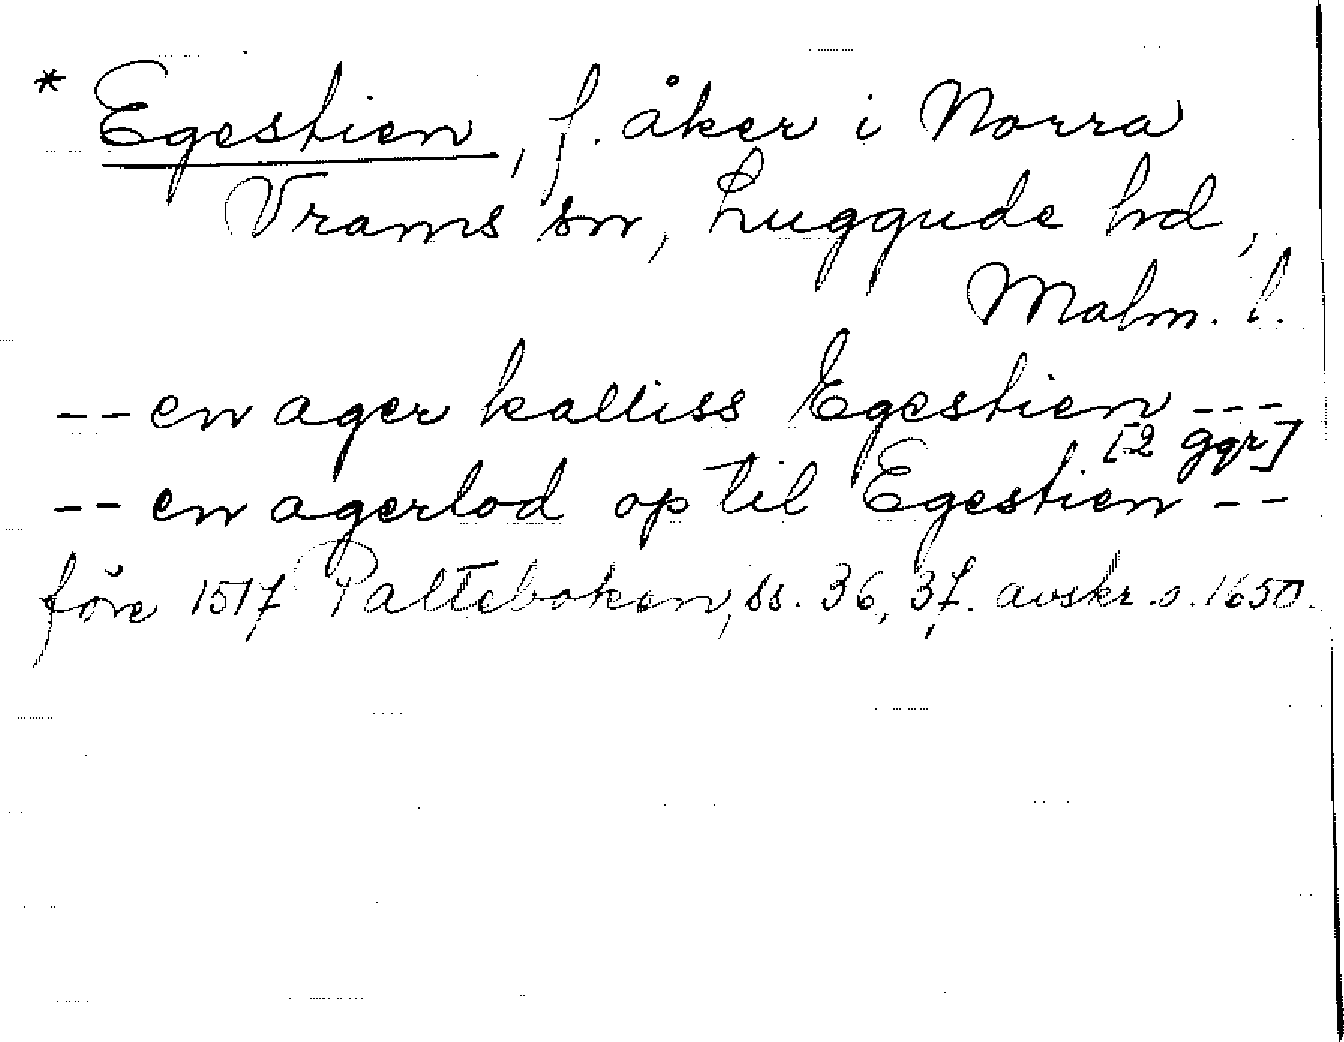 * Egestien, f. åker i Norra
Vrams sn, Luggude hd,
Malm. l.
-- en ager kalliss Egestien ---
[2 ggr]
-- en agerlod op til Egestien --
före 1517 Palteboken, ss. 36, 37. avskr. o. 1650.